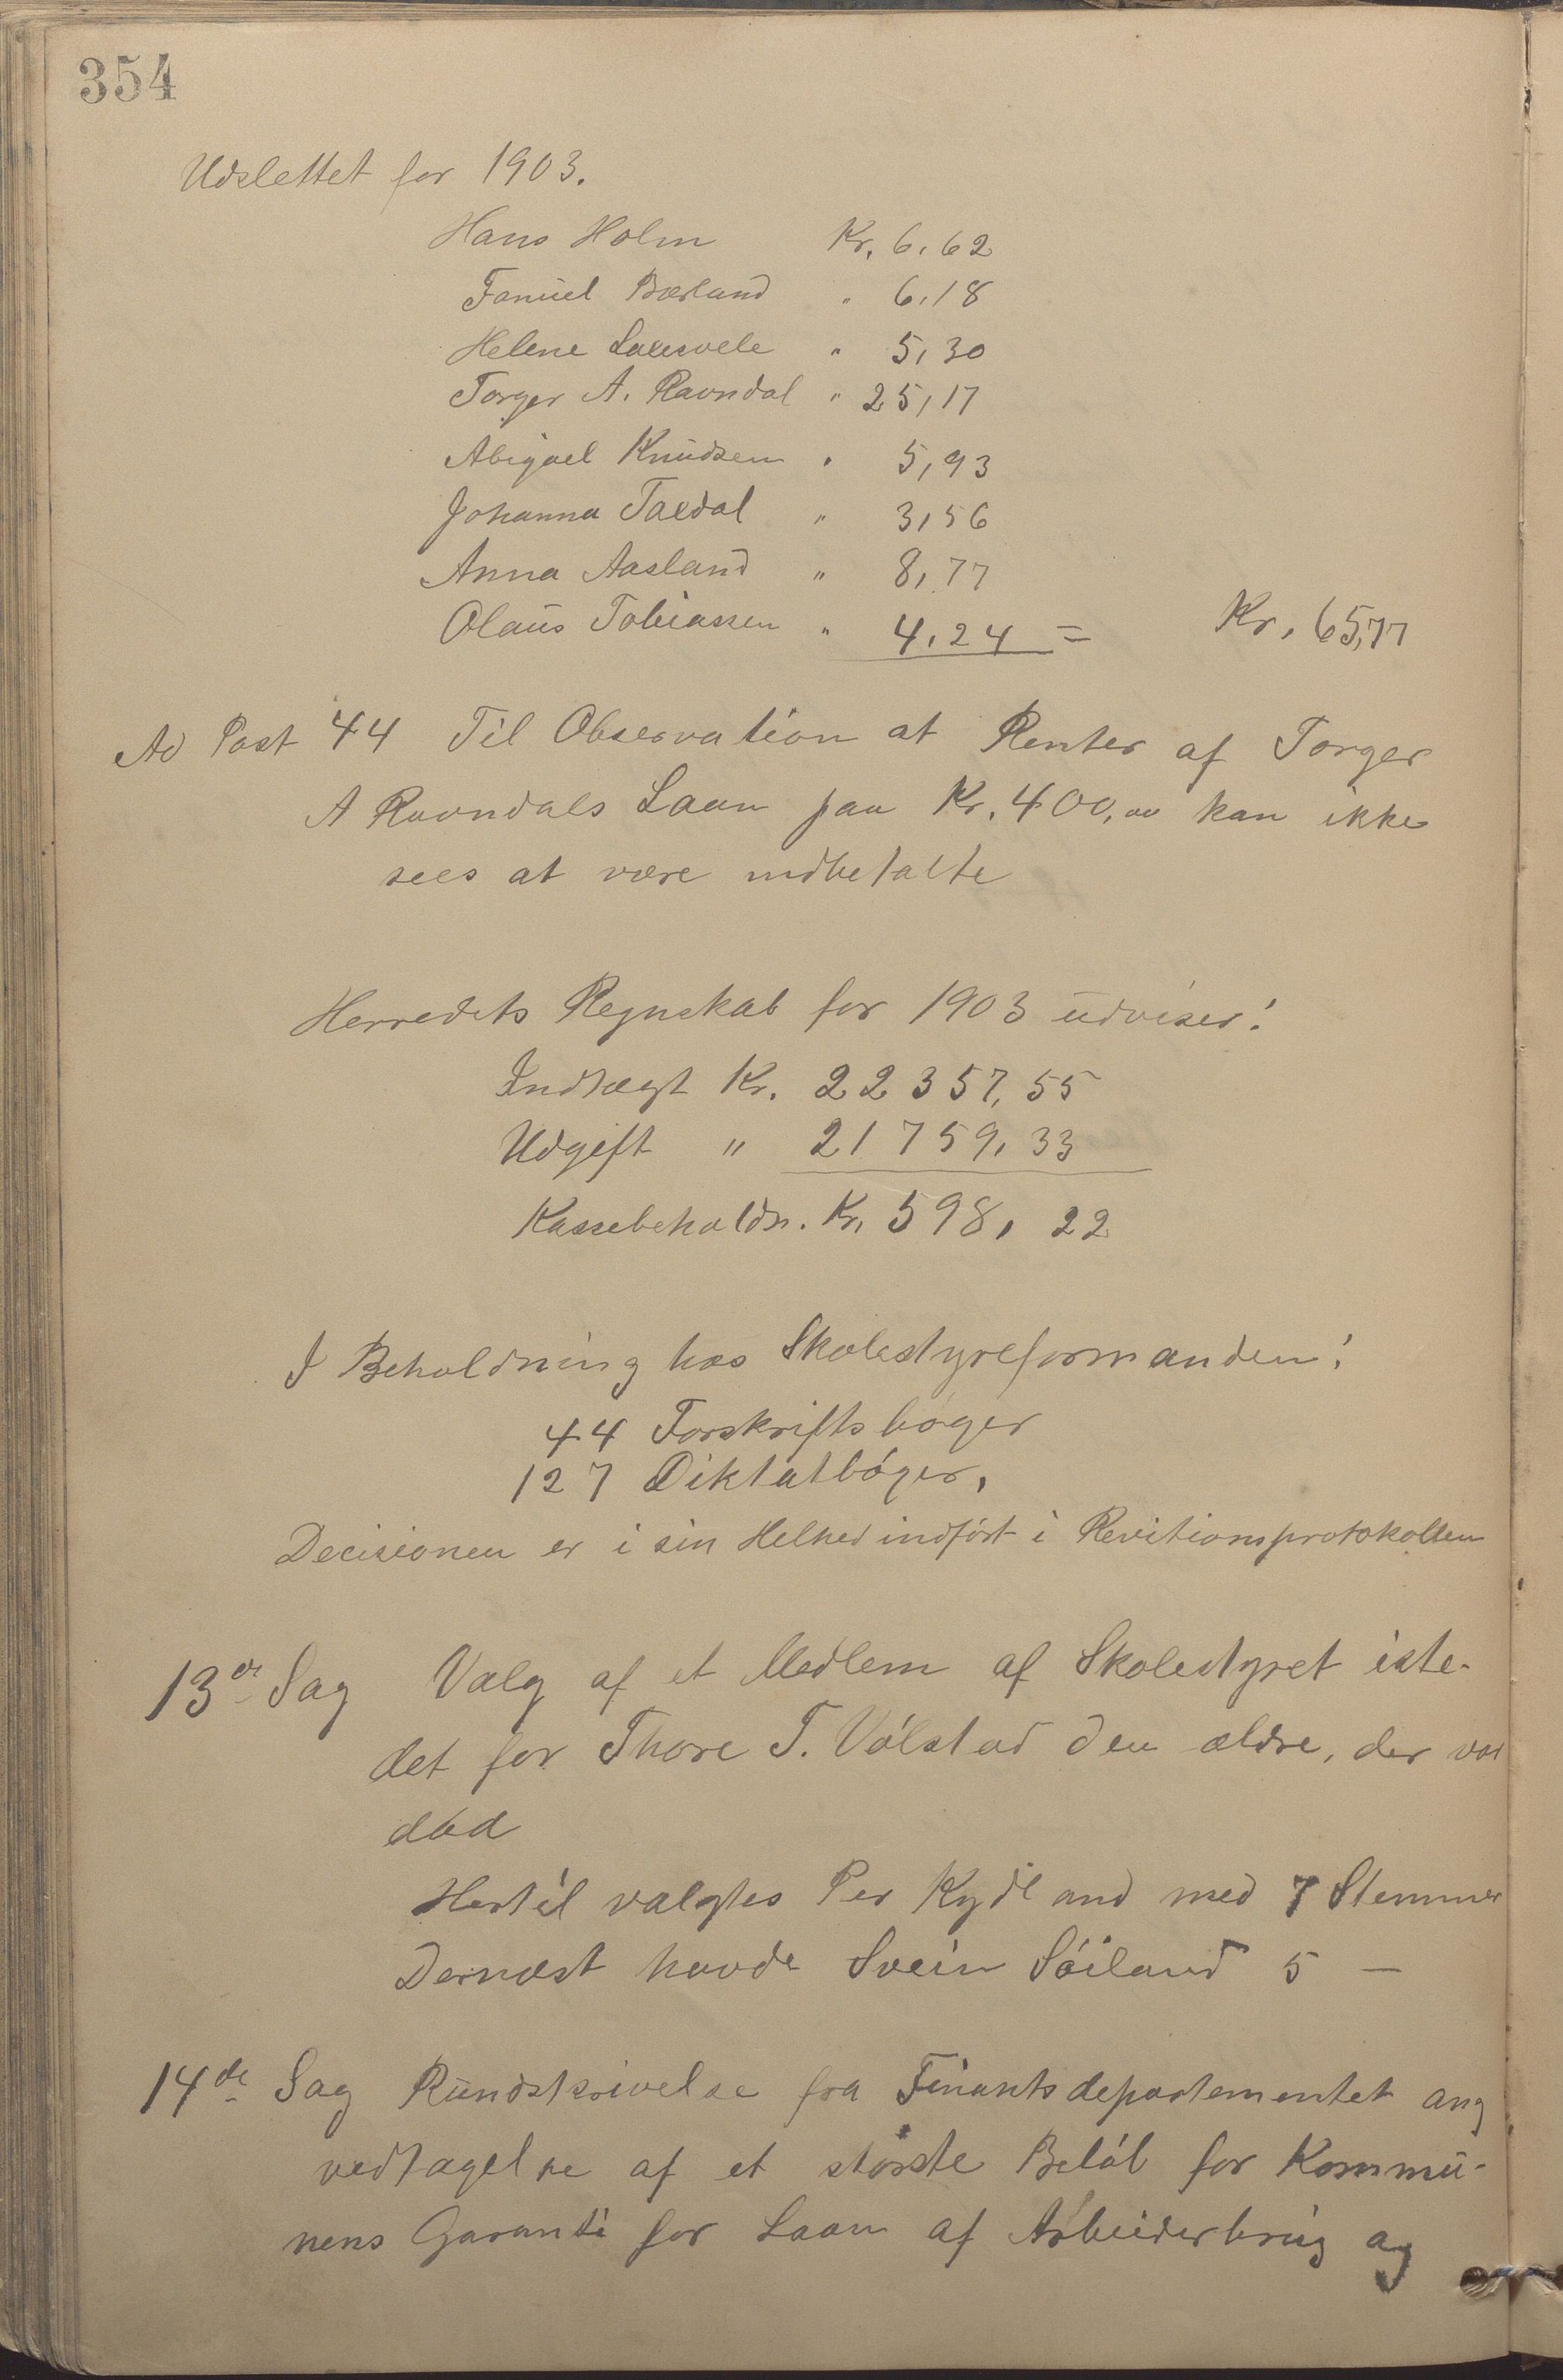 354
Udslettet for 1903.
Hans Holm Kr. 6,62
Samuel Bærland " 6,18
Helene Laxesvele " 5,30
Torger A. Ravndal " 25,17
Abigael Knudsen " 5,93
Johanna Taxdal " 3,56
Anna Aasland " 8,77
Olaus Tobiassen " 4,24 = Kr, 65,77
Ad Post 44 Til Observation at Renter af Torger
A Ravndals Laan paa Kr. 400,00 kan ikke
sees at være indbetalte
Herredets Regnskab for 1903 udviser:
Indtægt Kr. 22357,55
Udgift " 21759,33
Kassebeholdn. Kr. 598,22
I Beholdning hos Skolestyreformanden:
44 Forskriftsbøger
127 Diktatbøger,
Decisionen er i sin Helhed indført i Revitionsprotokollen
13de Sag Valg af et Medlem af Skolestyret iste-
det for Thore T. Vølstad den ældre, der var
død
Hertil valgtes Per Kydland med 7 Stemmer
Dernæst havde Svein Søiland 5 —
14de Sag Rundskrivelse fra Finantsdepartementet ang
vedtagelse af et største Beløb for Kommu-
nens Garanti for Laan af Arbeiderbrug og